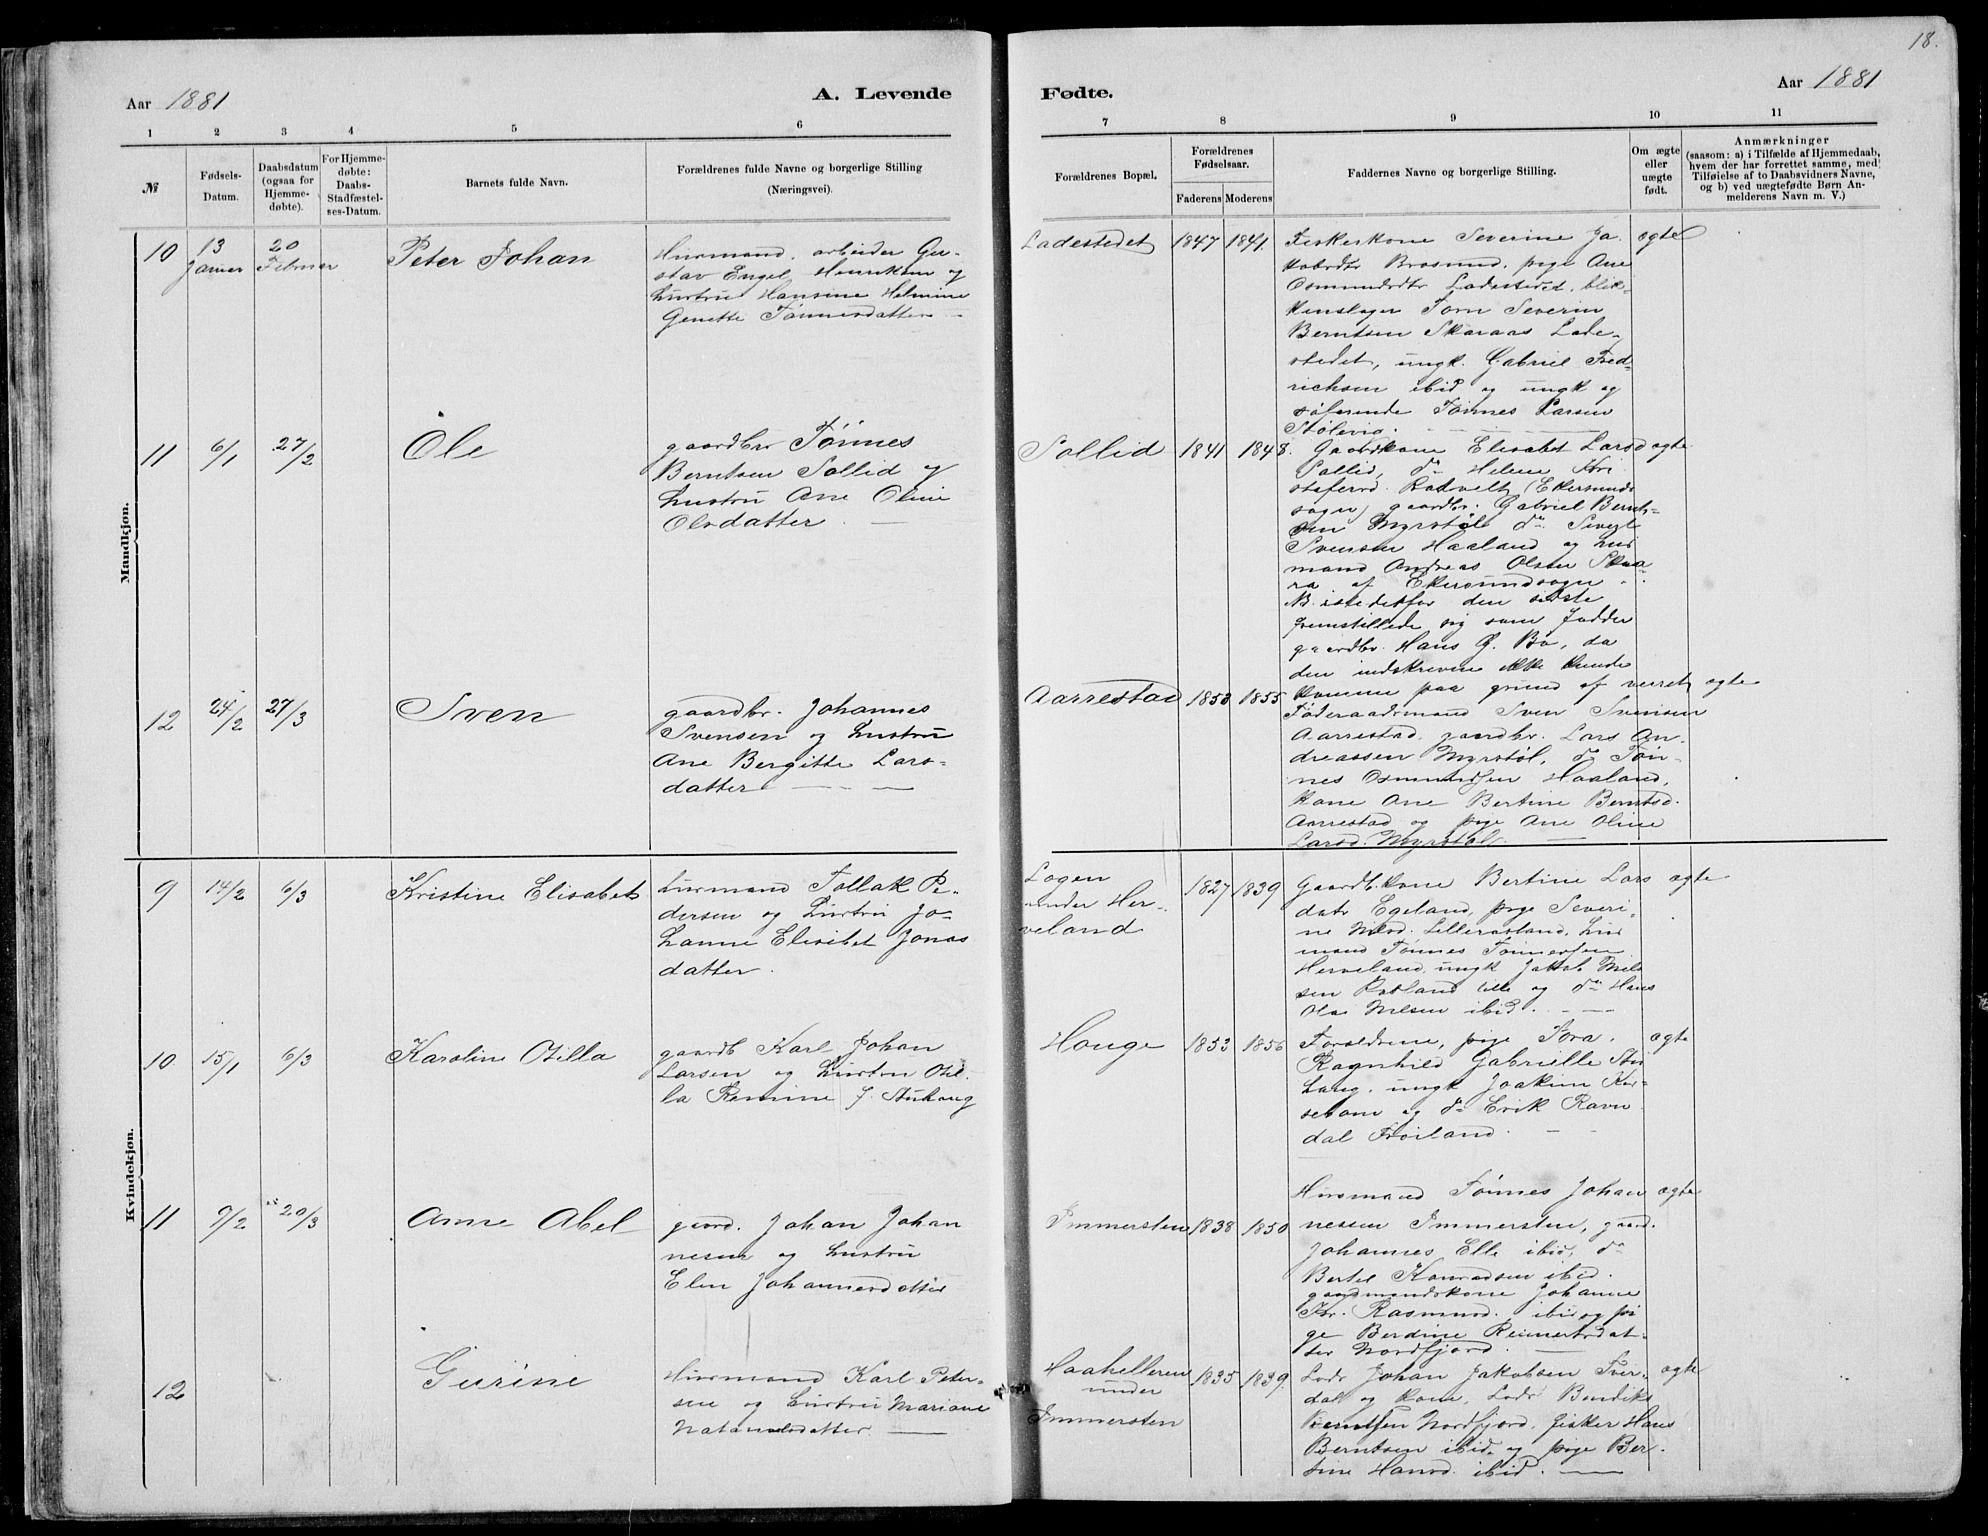 18.
Aar 1881
A. Levende
Fødte.
Aar 1881
1 2 3 4 5 6
7 8 9 10 11
№
Fødsels-
Datum.
Daabsdatum
(ogsaa for
Hjemme-
døbte).
For Hjemme-
døbte:
Daabs-
Stadfæstel-
ses-Datum.
Barnets fulde Navn.
Forældrenes fulde Navne og borgerlige Stilling
(Næringsvei).
Forældrenes Bopæl.
Forældrenes
Fødselsaar.
Faderens Moderens
Faddernes Navne og borgerlige Stilling.
Om ægte
eller
uægte
født.
Anmærkninger
(saasom: a) i Tilfælde af Hjemmedaab,
hvem der har forrettet samme, med
Tilføielse af to Daabsvidners Navne,
og b) ved uægtefødte Børn An-
melderens Navn m. V.)
Mandkjøn.
10
13
Januar
20
Februar
Peter Johan
Husmand, arbeider Gu-
stav Engel Henriksen og
hustru Hansine Helmine
Genette Tønnesdatter
Ladestedet 1847 1841.
Fiskerkone Severine Ja-
kobsdtr Brosund, pige Ane
Osmundsdtr Ladestedet, blik-
kenslager Tørn Severin
Berntsen Skaraas Lade-
stedet, ungk. Gabriel Fred-
richsen ibid og ungk og
søfarende Tønnes Larsen
Stølevig.
ægte
11 6/1 27/2 Ole
gaardbr Tønnes
Berntsen Sollid og
hustru Ane Oline
Olsdatter
Sollid 1841 1848.
Gaardkone Elisabet Larsd
Sollid, do Helene Kri
stofersd. Rodvelt (Ekersunds
sogn) gaardbr. Gabriel Bernt-
sen Myrstøl do Sivert
Svensen Haaland og hus
mand Andreas Olsen Skaa-
ra af Ekersundsogn.
NB. istedetfor den sidste
fremstillede sig som fadder
gaardbr. Hans G. Bø, da
den indskrevne ikke kunde
komme paa grund af veiret
ægte
12 24/2 27/3 Sven
gaardbr. Johannes
Svensen og hustru
Ane Bergitte Lars-
datter
Aarrestad 1853 1855
Føderaadsmand Sven Svensen
Aarrestad, gaardbr. Lars An-
dreassen Myrstøl, do Tøn-
nes Osmundsen Haaland,
kone Ane Bertine Berntsd.
Aarrestad og pige Ane Oline
Larsd. Myrstøl
ægte
Kvindekjøn.
9 14/2 6/3 Kristine Elisabet
husmand Tollak Pe-
dersen og hustru Jo-
hanne Elisabet Jonas
datter.
Logen
under Her-
veland
1827 1839
Gaardb.kone Bertine Lars
datr Egeland, pige Severi-
ne Nilsd. Lillerasland, hus
mand Tønnes Tønnesen
Herveland, ungk Jakob Nils
sen Rotland lille og do Hans
Olai Nilsen ibid.
ægte
10 15/1 6/3 Karoline Otilla
gaardb Karl Johan
Larsen og hustru Otil-
la Remine f. Stuhaug
Houge 1853 1856
Forældrene, pige Tora
Ragnhild Gabrielle Stu
haug, ungk Joakim Kir-
sebom og do Erik Ravn
dal Frøiland.
ægte
11 9/2 20/3 Anne Abel
gaard. Johan Johan
nesen og hustru
Elen Johannesdatter
Immersten 1838 1850
Husmand Tønnes Johan
nessen Immersten, gaard.
Johannes Elle ibid, do
Bertel Konradsen ibid.
gaardmandskone Johanne
Kr. Rasmusd. ibid og pi
ge Berdine Reinertsdat-
ter Nordfjord.
ægte
12
Gurine
Husmand Karl Peter-
sen og hustru Mariane
Natanelsdatter.
Haahelleren
under
Immersten
1835 1839.
Lods Johan Jakobsen Sver-
dal og kone, Lods Bendiks
Berntsen Nordfjord, fisker Hans
Berntsen ibid og pige Ber-
tine Hansd. ibid.
ægte